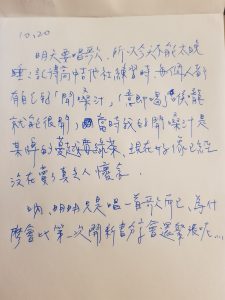 10.20
明天要唱歌，所以今天不能太晚
睡，記得高中時代社練習時，每個人都
有自己的「開嗓汁」(意即喝了後嚨
就能很開)，當時我的開嗓汁是
某牌的 綠茶，現在好像已經
沒在賣了真令人懷念。
吶，明明只是唱一首歌而已，為什
麼會比第一次開新書 會還緊張呢...